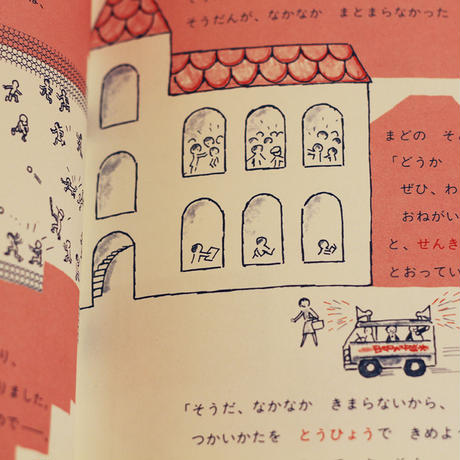 そうだんが、なかなか　まとまらなかった
まどの　そ
「どうか
ぜひ、わ
おねがい
と、せんき
とおってい
り、
りました。
ので――。
「そうだ、なかなか　きまらないから、
つかいかたを　とうひょうで　きめよう